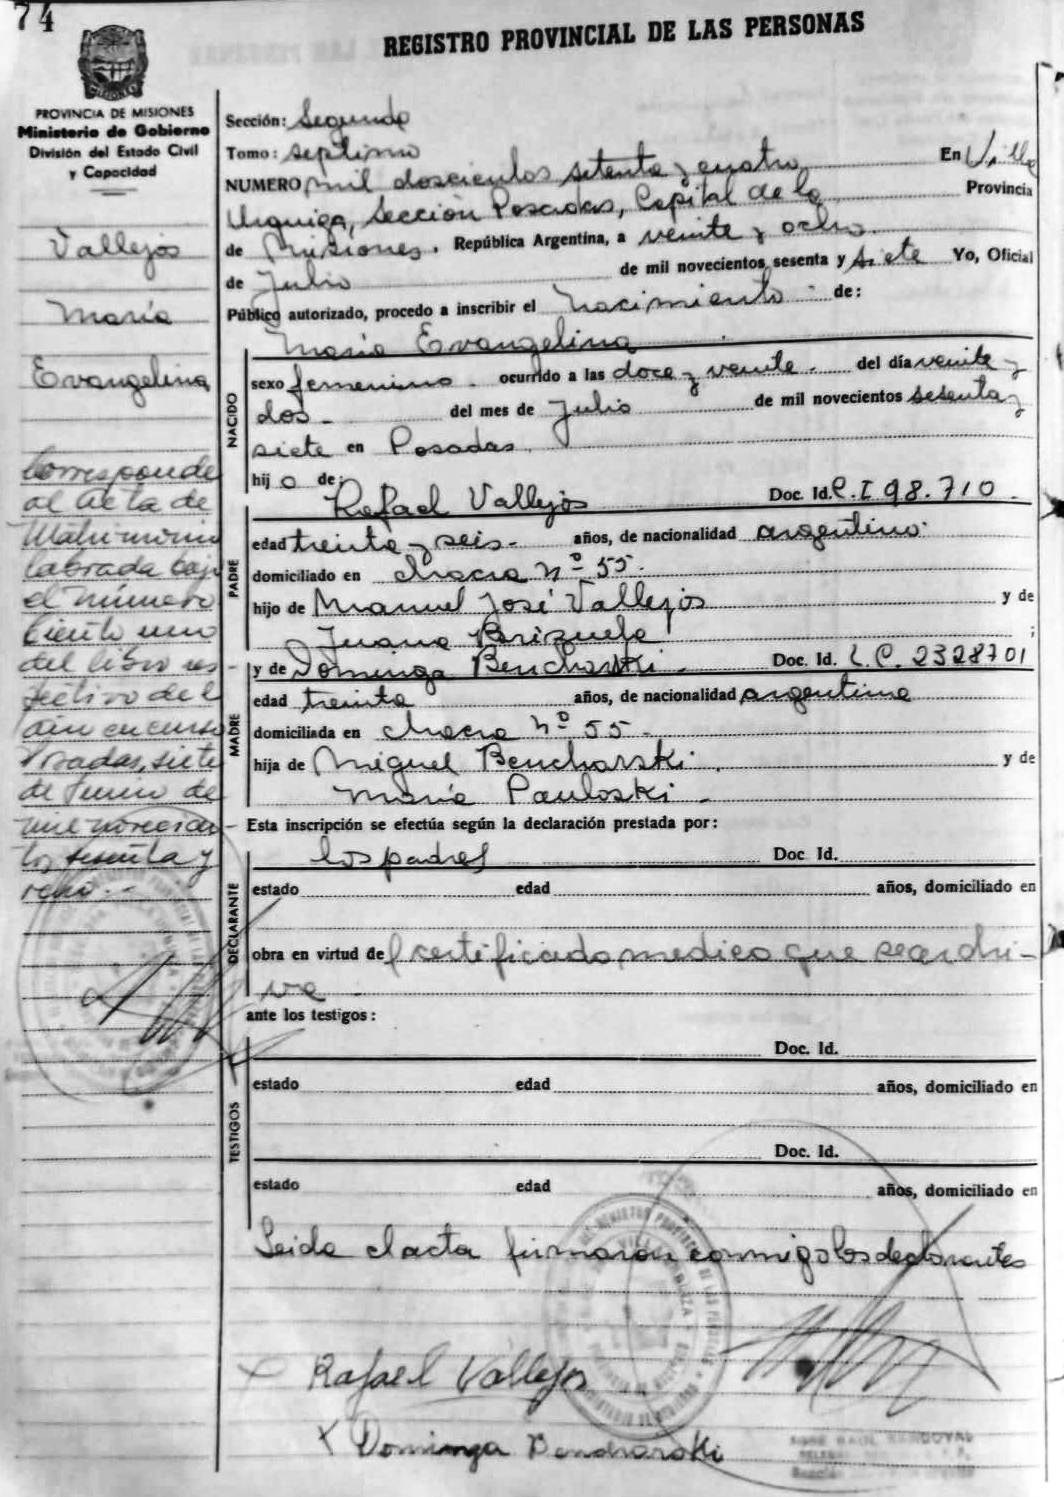 74
REGISTRO PROVINCIAL DE LAS PERSONAS
PROVINCIA DE MISIONES
Ministerio de Gobierno
División del Estado Civil
y Capacidad
Vallejos
María
Evangelina
Corresponde
al acta de
Matrimonio
labrada bajo
el número
ciento uno
del libro res-
pectivo del
año en curso
Posadas, siete
de Junio de
mil novecien-
tos sesenta y
Sección: Segunda
Tomo: septimo
En Villa
NUMERO mil doscientos setenta y cuatro
Urquiza, Sección Posadas, Capital de la Provincia
de Misiones. República Argentina, a veinte y ocho
de Julio de mil novecientos sesenta y siete Yo, Oficial
Público autorizado, procedo a inscribir el nacimiento de:
NACIDO
María Evangelina
sexo femenino. ocurrido a las doce y veinte. del día veinte y
dos - del mes de Julio de mil novecientos sesenta y
siete en Posadas
hij a de:
PADRE
Rafael Vallejos Doc. Id. C.I 98.710.
edad treinta y seis. años, de nacionalidad argentino.
domiciliado en chacra nº 55.
hijo de Manuel José Vallejos y de
Juana Brizuela ;
MADRE
y de Dominga Bencharski. Doc. Id. L.C. 2328701
edad treinta años, de nacionalidad argentina
domiciliada en chacra nº 55.
hija de Miguel Bencharski y de
María Pauloski.
Esta inscripción se efectúa según la declaración prestada por:
DECLARANTE
los padres Doc. Id.
estado edad años, domiciliado en
obra en virtud de certificado medico que se archi-
va
ante los testigos:
TESTIGOS
Doc. Id.
estado edad años, domiciliado en
Doc. Id.
estado edad años, domiciliado en
Leida el acta firmaron conmigo los declarantes
x Rafael Vallejos
x Dominga Bencharski